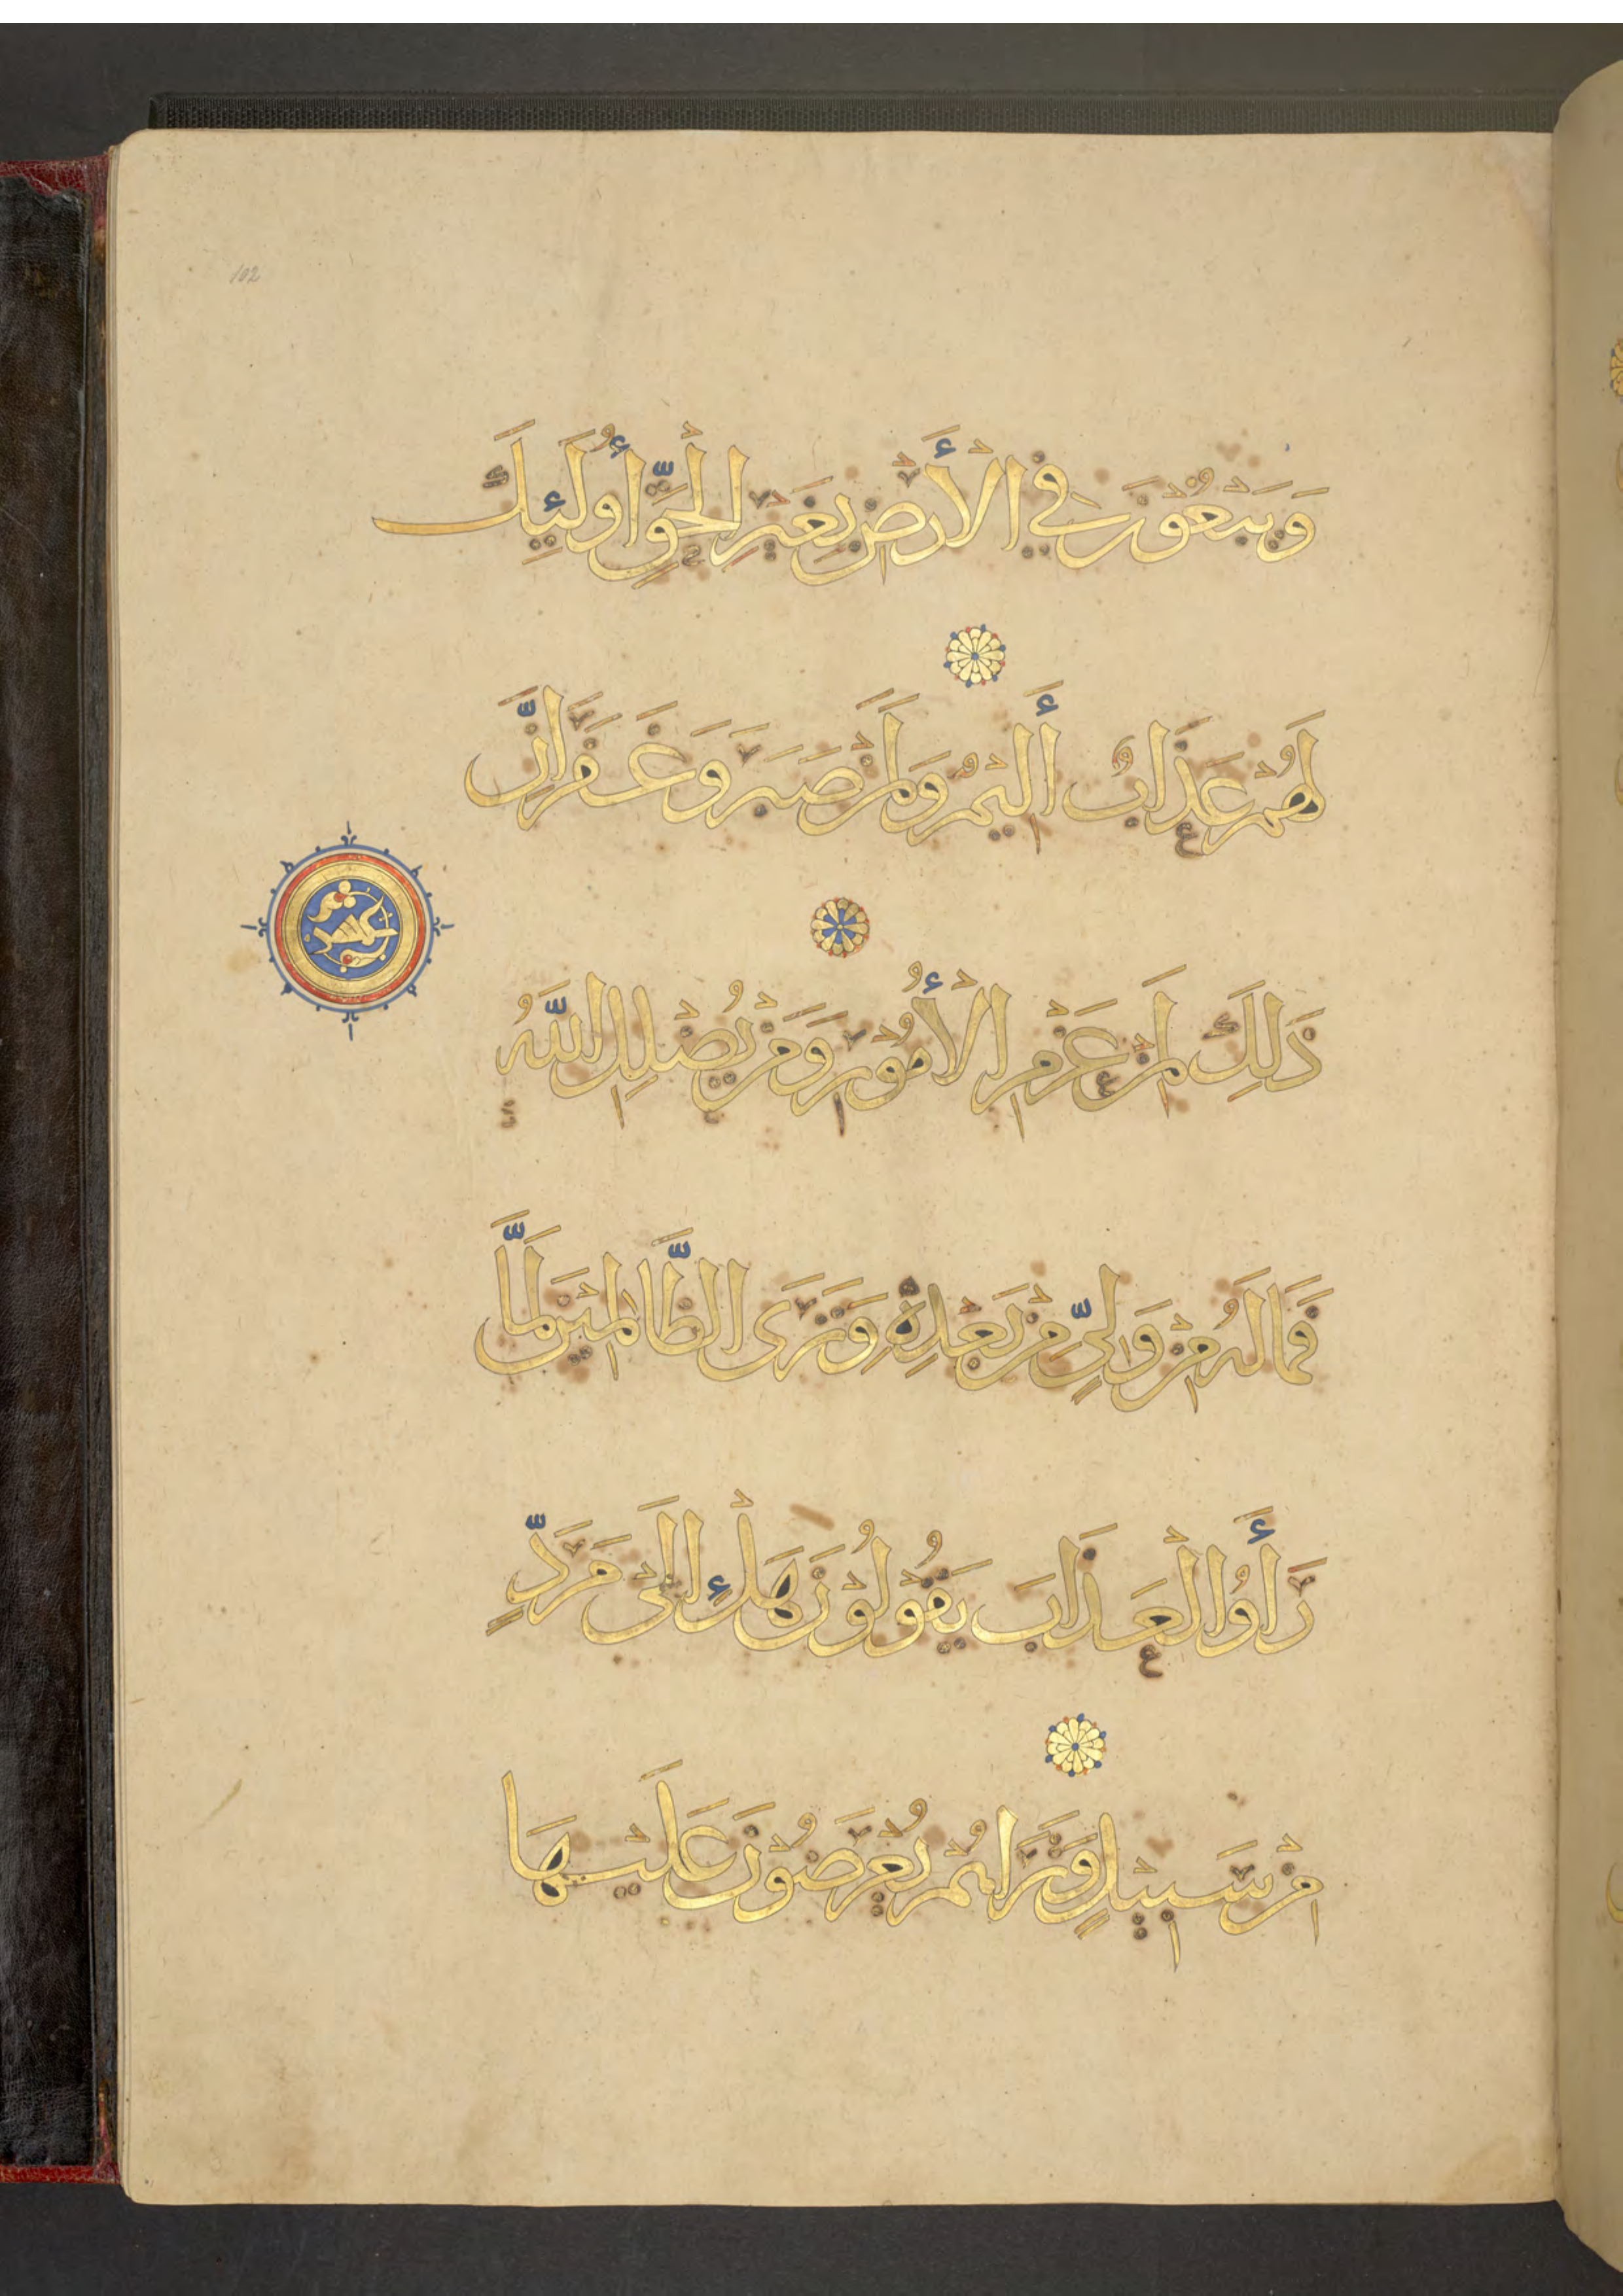 102
وَيَبْغُوْنَ فِي الْأَرْضِ بِغَيْرِ الْحَقِّ أُولَئِكَ
لَهُمْ عَذَابٌ أَلِيْمٌ وَلَمَنْ صَبَرَ وَغَفَرَ إِنَّ
ذَلِكَ لَمِنْ عَزْمِ الْأُمُوْرِ وَمَنْ يُضْلِلِ اللَّهُ
فَمَا لَهُ مِنْ وَلِيٍّ مِنْ بَعْدِهِ وَتَرَى الظَّالِمِيْنَ لَمَّا
رَأَوُا الْعَذَابَ يَقُوْلُوْنَ هَلْ إِلَى مَرَدٍّ
مِنْ سَبِيْلٍ وَتَرَاهُمْ يُعْرَضُوْنَ عَلَيْهَا